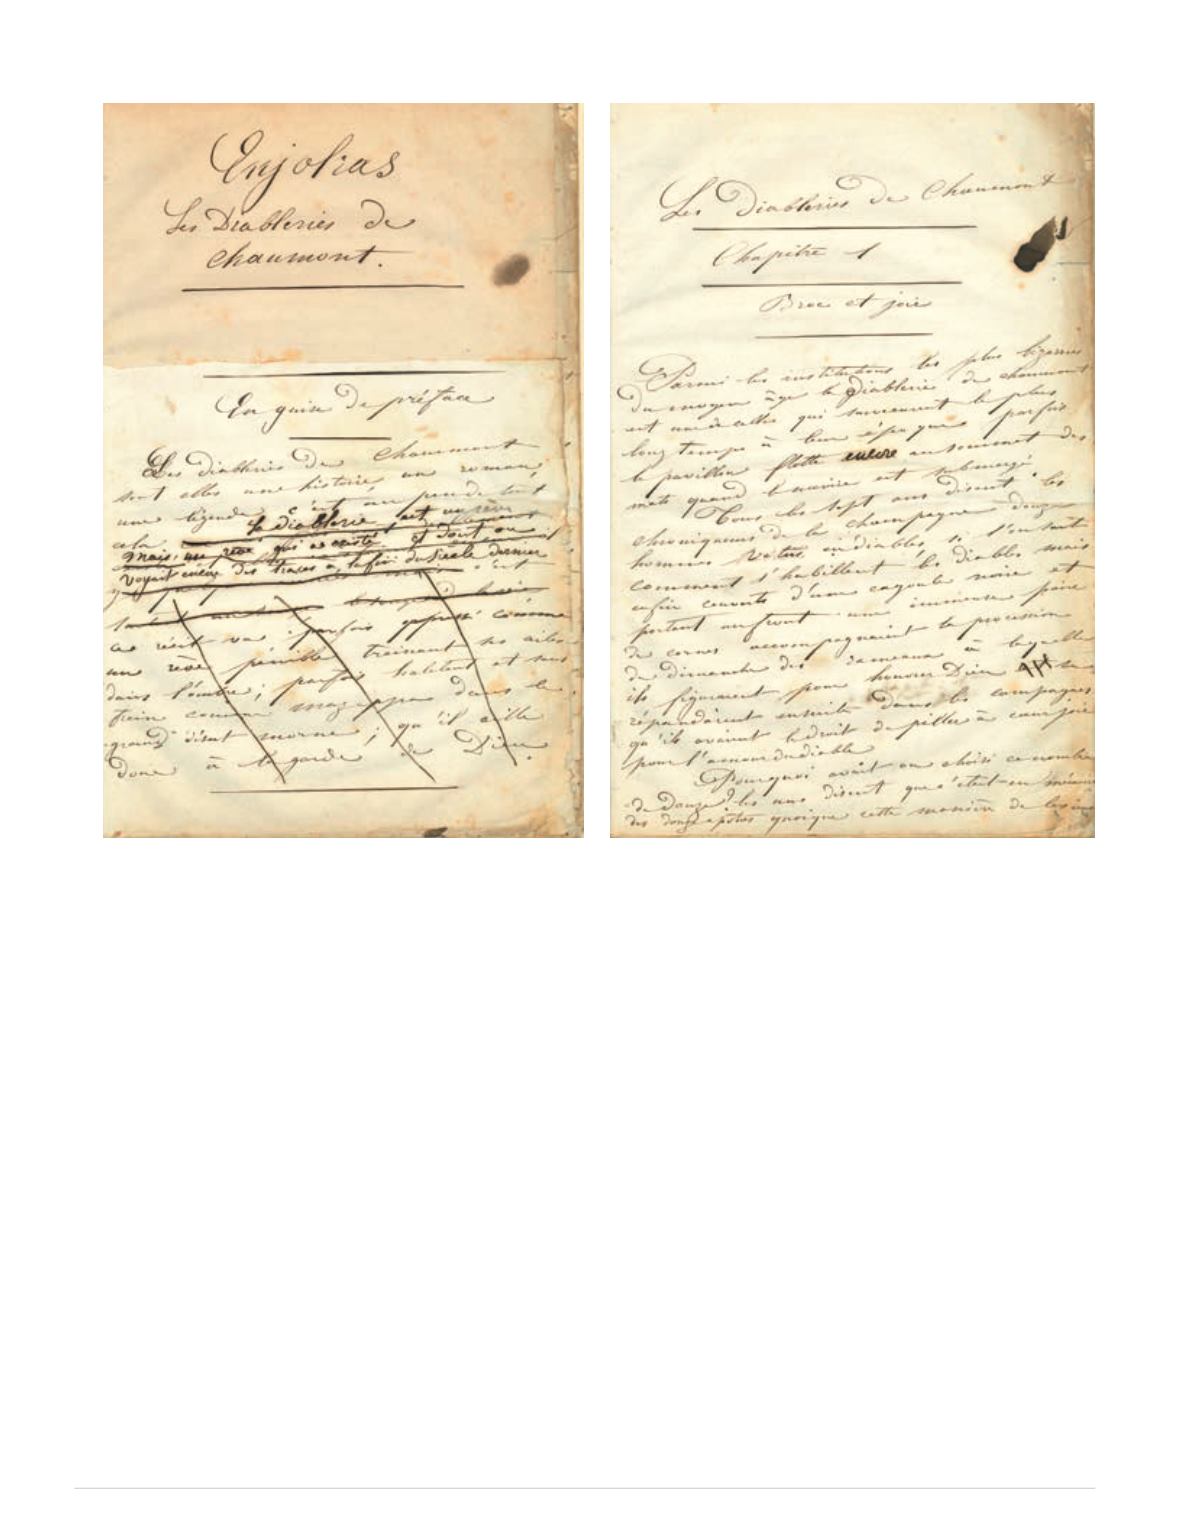 Enjolras
Les Diableries de
chaumont.
En guise de préface
Les diableries de chaumont
sont elles une histoire, un roman,
une légende, c'est un peu de tout
cela. la diablerie est un rêve
mais, un rêve qui a existé et dont on
voyait encore des traces à la fin du siècle dernier
ce récit va parfois oppressé comme
un rêve pénible traînant ses ailes
dans l'ombre; parfois haletant et sans
frein comme mazeppa dans le
grand désert morne; qu'il aille
donc à la garde de Dieu.
Les Diableries de Chaumont
Chapitre 1
Broc et joie
Parmi les institutions les plus bizarres
du moyen âge la Diablerie de chaumont
est une de celles qui survécurent le plus
long temps à leur époque parfois
le pavillon flotte encore au sommet des
mats quand le navire est submergé
Tous les sept ans disent les
chroniqueurs de la champagne douze
hommes vêtus en diables
comment s'habillent les diables mais
enfin couverts d'une cagoule noire et
portant au front une immense paire
de cornes accompagnaient la procession
du dimanche des rameaux à laquelle
ils figuraient pour honorer Dieu
répandaient ensuite dans les campagnes
qu'ils avaient le droit de piller à cœur joie
pour l'amour du diable
Pourquoi avait on choisi ce nombre
de douze? les uns disent que c'était en mémoire
des douze apôtres quoique cette manière de les